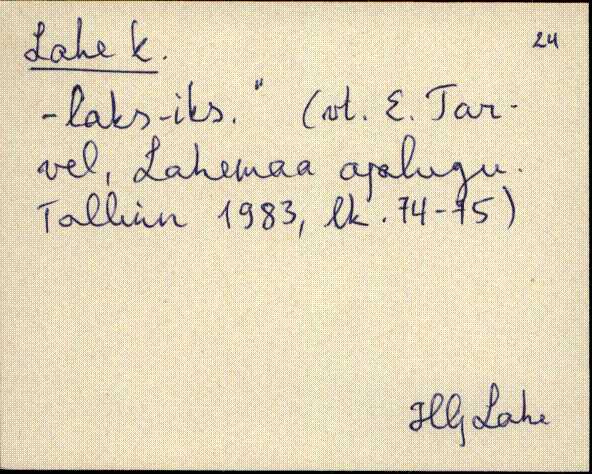 Lahe k.
24
-laks-iks." (vt. E. Tar-
vel, Lahemaa ajalugu.
Tallinn 1983, lk. 74-75)
HLj Lahe